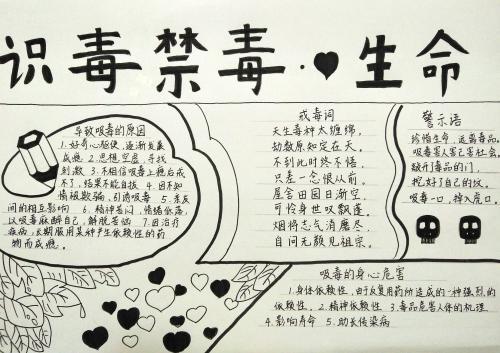 识毒禁毒·生命
导致吸毒的原因
1.好奇心驱使,逐渐发展
成瘾 2.思想空虚,寻找
刺激 3.不相信吸毒上瘾后戒
不了,结果不能自拔 4.因不知
情被欺骗,引诱吸毒 5.亲友
间的相互影响 6.精神苦闷,情绪低落,
以吸毒麻醉自己,解脱苦恼 7.因治疗
疾病,长期服用某种产生依赖性的药
物而成瘾。
戒毒词
天生毒神太缠绵,
劫数原知定在天。
不到此时终不悟,
只差一念恨从前。
屋舍田园日渐空
可怜身世叹飘蓬。
烟将志气消磨尽
自问无颜见祖宗。
警示语
珍惜生命,远离毒品。
吸毒害人害己害社会。
敲开毒品的门,
挖好了自己的坟。
吸毒一口,掉入虎口。
吸毒的身心危害
1.身体依赖性,由于反复用药所造成的一种强烈的
依赖性。2.精神依赖性 3.毒品危害人体的机理
4.影响寿命 5.助长传染病